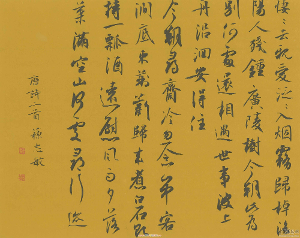 悽々去親愛泛々入煙霧歸棹洛
陽人殘鐘廣陵樹今朝此為
別何處還相遇世事波上
舟沿洄安得住
今朝郡齋冷忽念山中客
澗底束荊薪歸來煮白石欲
持一瓢酒遠慰風雨夕落
葉滿空山何處尋行迹
詩二首